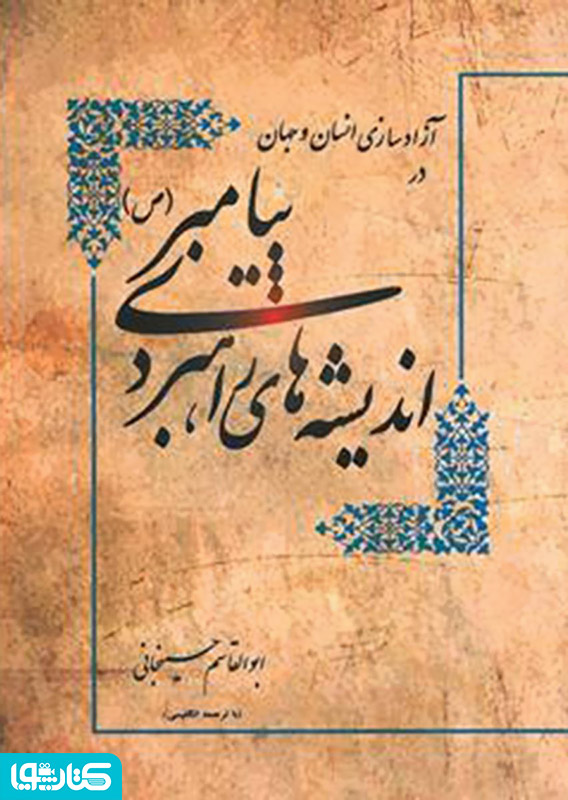 آزادسازی انسان و جهان
در
اندیشه‌های راهبردی
پیامبر (ص)
ابوالقاسم حسینجانی
(با ترجمه انگلیسی)
کتابشهر